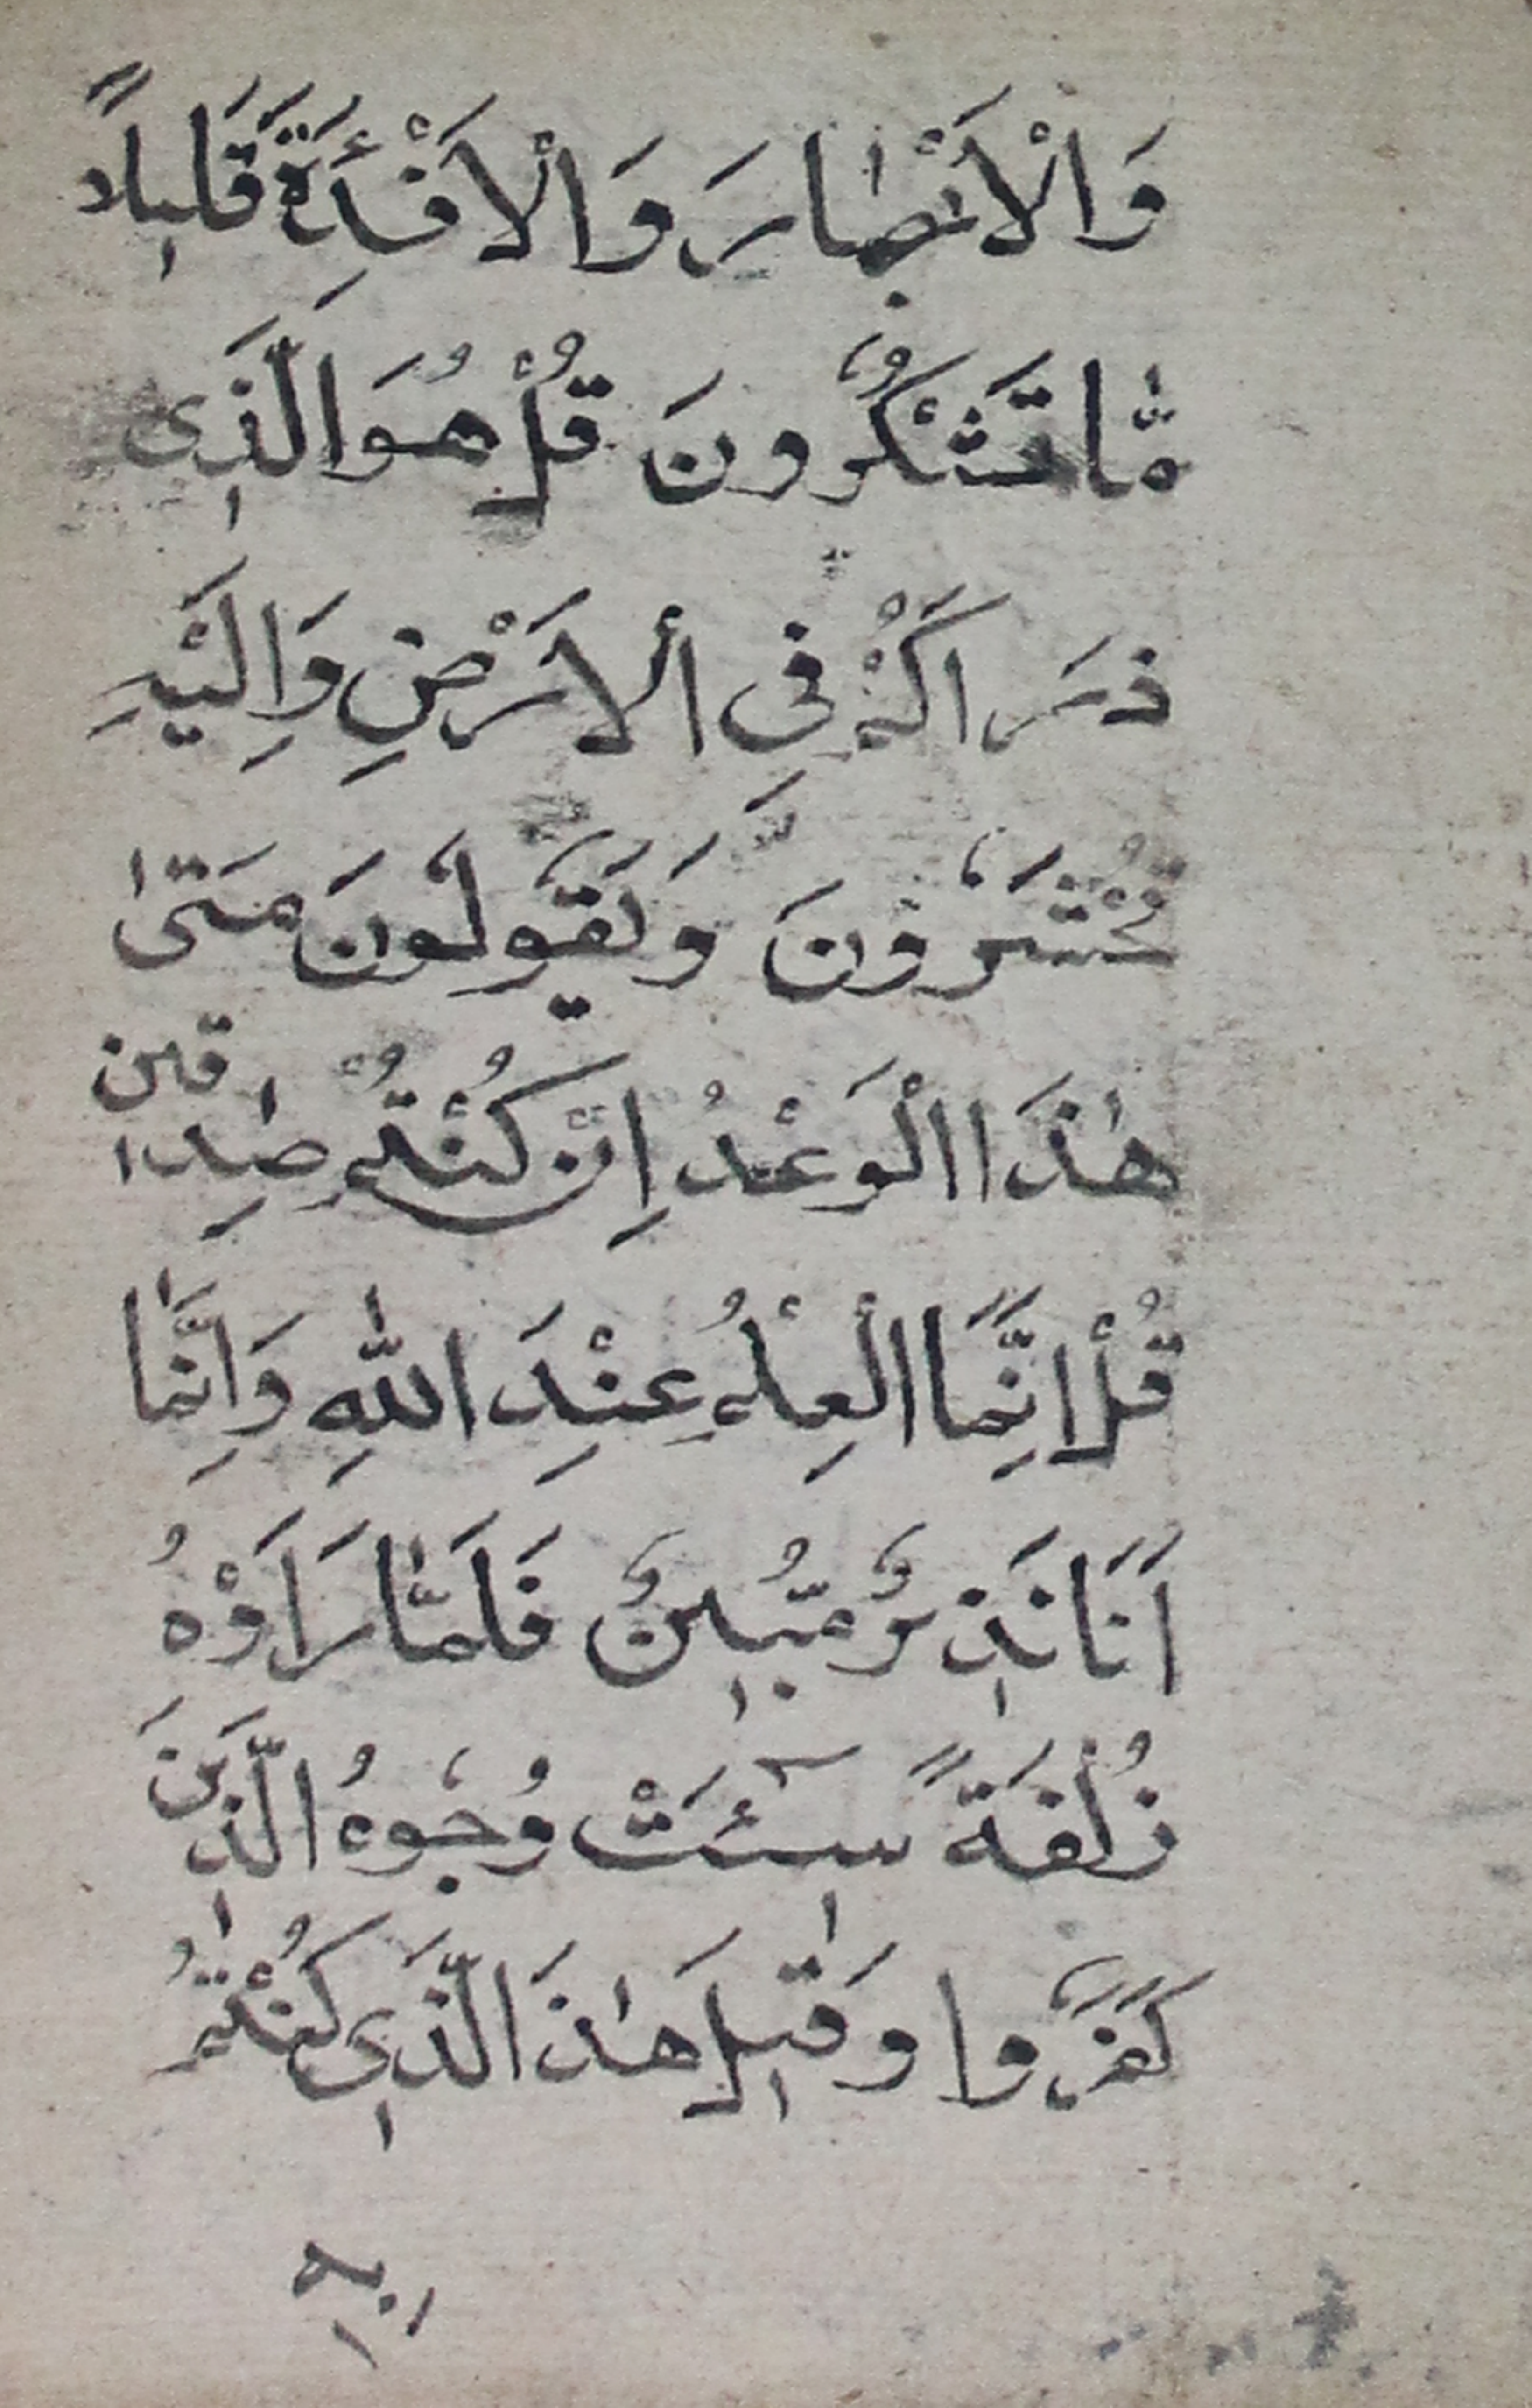 وَالْاَبْصٰارَ وَالْاَفْئِدَةَ قَلٖيلاً
مّٰا تَشْكُرُونَ قُلْ هُوَ الَّذٖى
ذَرَاَكُمْ فِى الْاَرْضِ وَاِلَيْهِ
تُحْشَرُونَ وَيَقُولُونَ مَتىٰ
هٰذَا الْوَعْدُ اِنْ كُنْتُمْ صٰدِقٖين
قُلْ اِنَّمَا الْعِلْمُ عِنْدَ اللّٰهِ وَاِنَّمٰا
اَنَا نَذٖيرٌ مُّبٖينٌ فَلَمّٰا رَاَوْهُ
زُلْفَةً سٖٓيئَتْ وُجُوهُ الَّذٖينَ
كَفَرُوا وَقٖيلَ هٰذَا الَّذٖى كُنْتُمْ
بهٖ